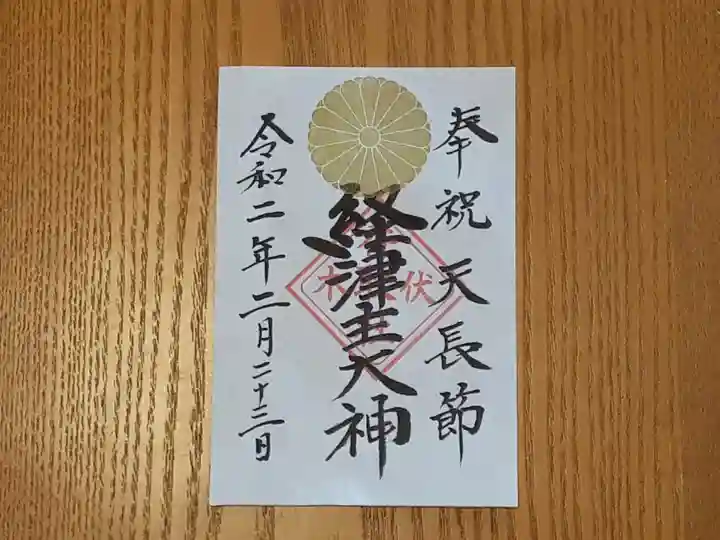 奉祝天長節
経津主大神
令和二年二月二十三日
伏
木